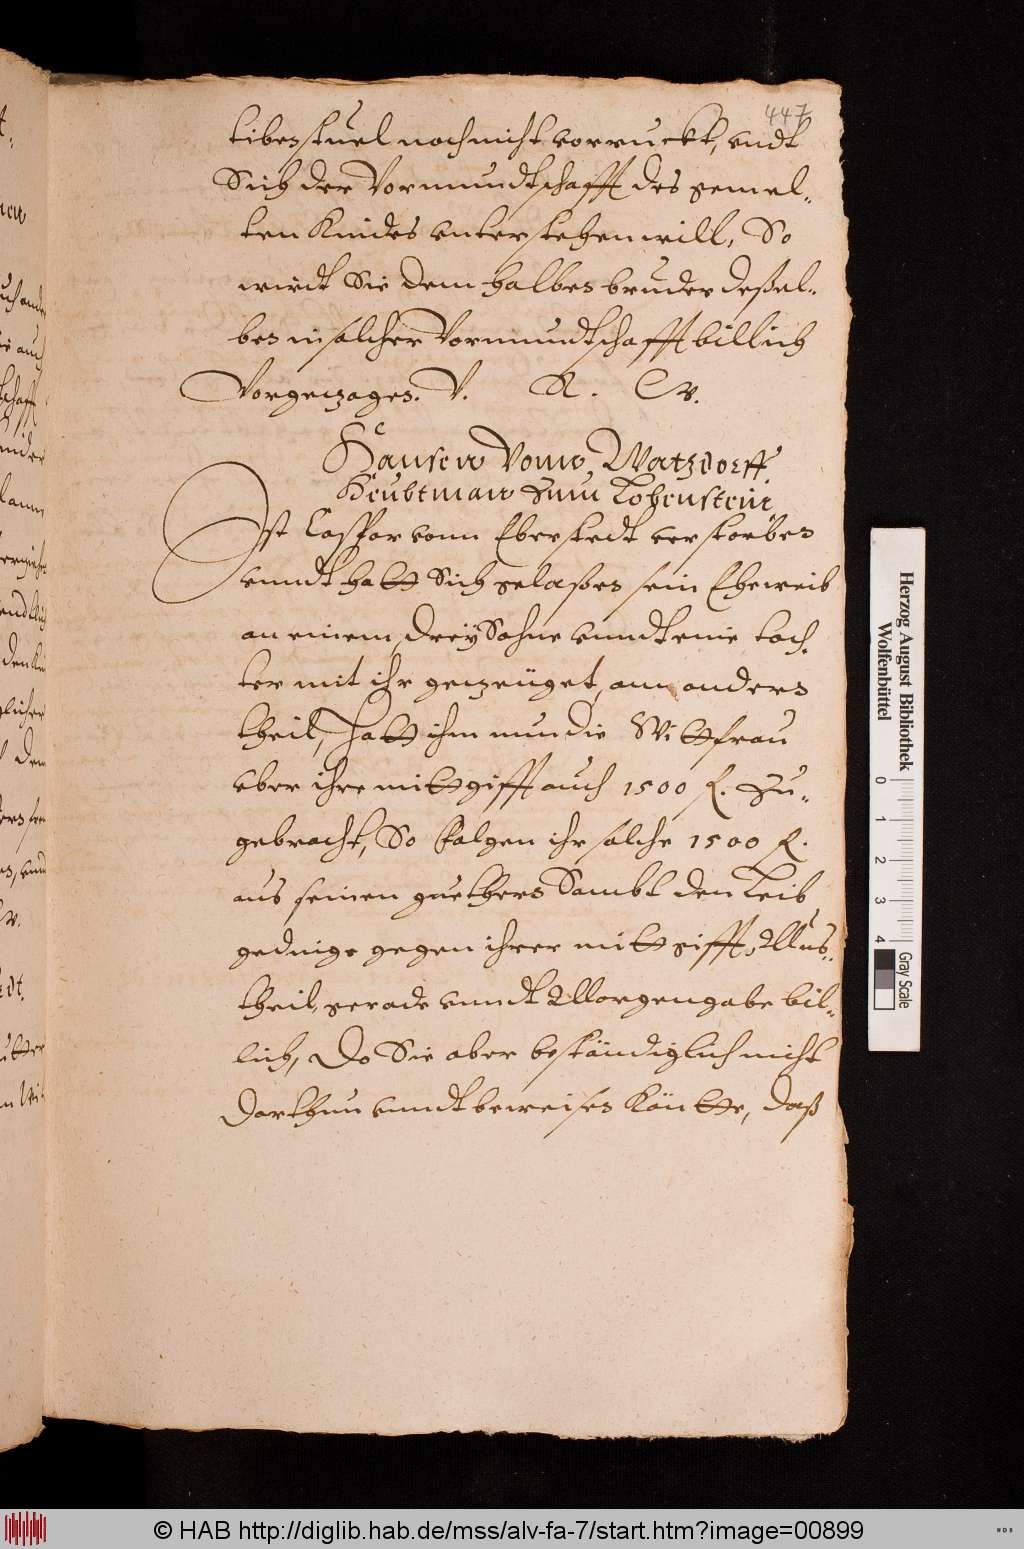 447
tibenstuel noch nicht vorruckt, vndt
Sich der Vormundtschafft des gemel-
ten Kindes vnterstehen will, So
wirdt Sie dem halben bruder deßel-
ben in solcher Vormundtschafft billich
Vorgetzogen. V. R. W.
Hansen Vonn Watzdorff
Heubtman Zum Lohenstein
Ist Caspar vonn Eberstedt verstorben
vnndt hatt Sich gelaßen sein Eheweib
an einem, drey Sohne vnndt eine toch-
ter mit ihr getzeuget, am andern
theil, Hatt ihm nun die Wittfrau
vber ihre mittgifft auch 1500 f. Zu-
gebracht, So folgen ihr solche 1500 f.
aus seinen guethern Sambt den Leib
gedinge gegen ihrer mittgifft, Mus-
theil, gerade vnndt Morgengabe bil-
lich, Do Sie aber bestandiglich nicht
darthun vnndt beweisen Köntte, daß
Herzog August Bibliothek
Wolfenbüttel
0 1 2 3 4
Gray Scale
© HAB http://diglib.hab.de/mss/alv-fa-7/start.htm?image=00899